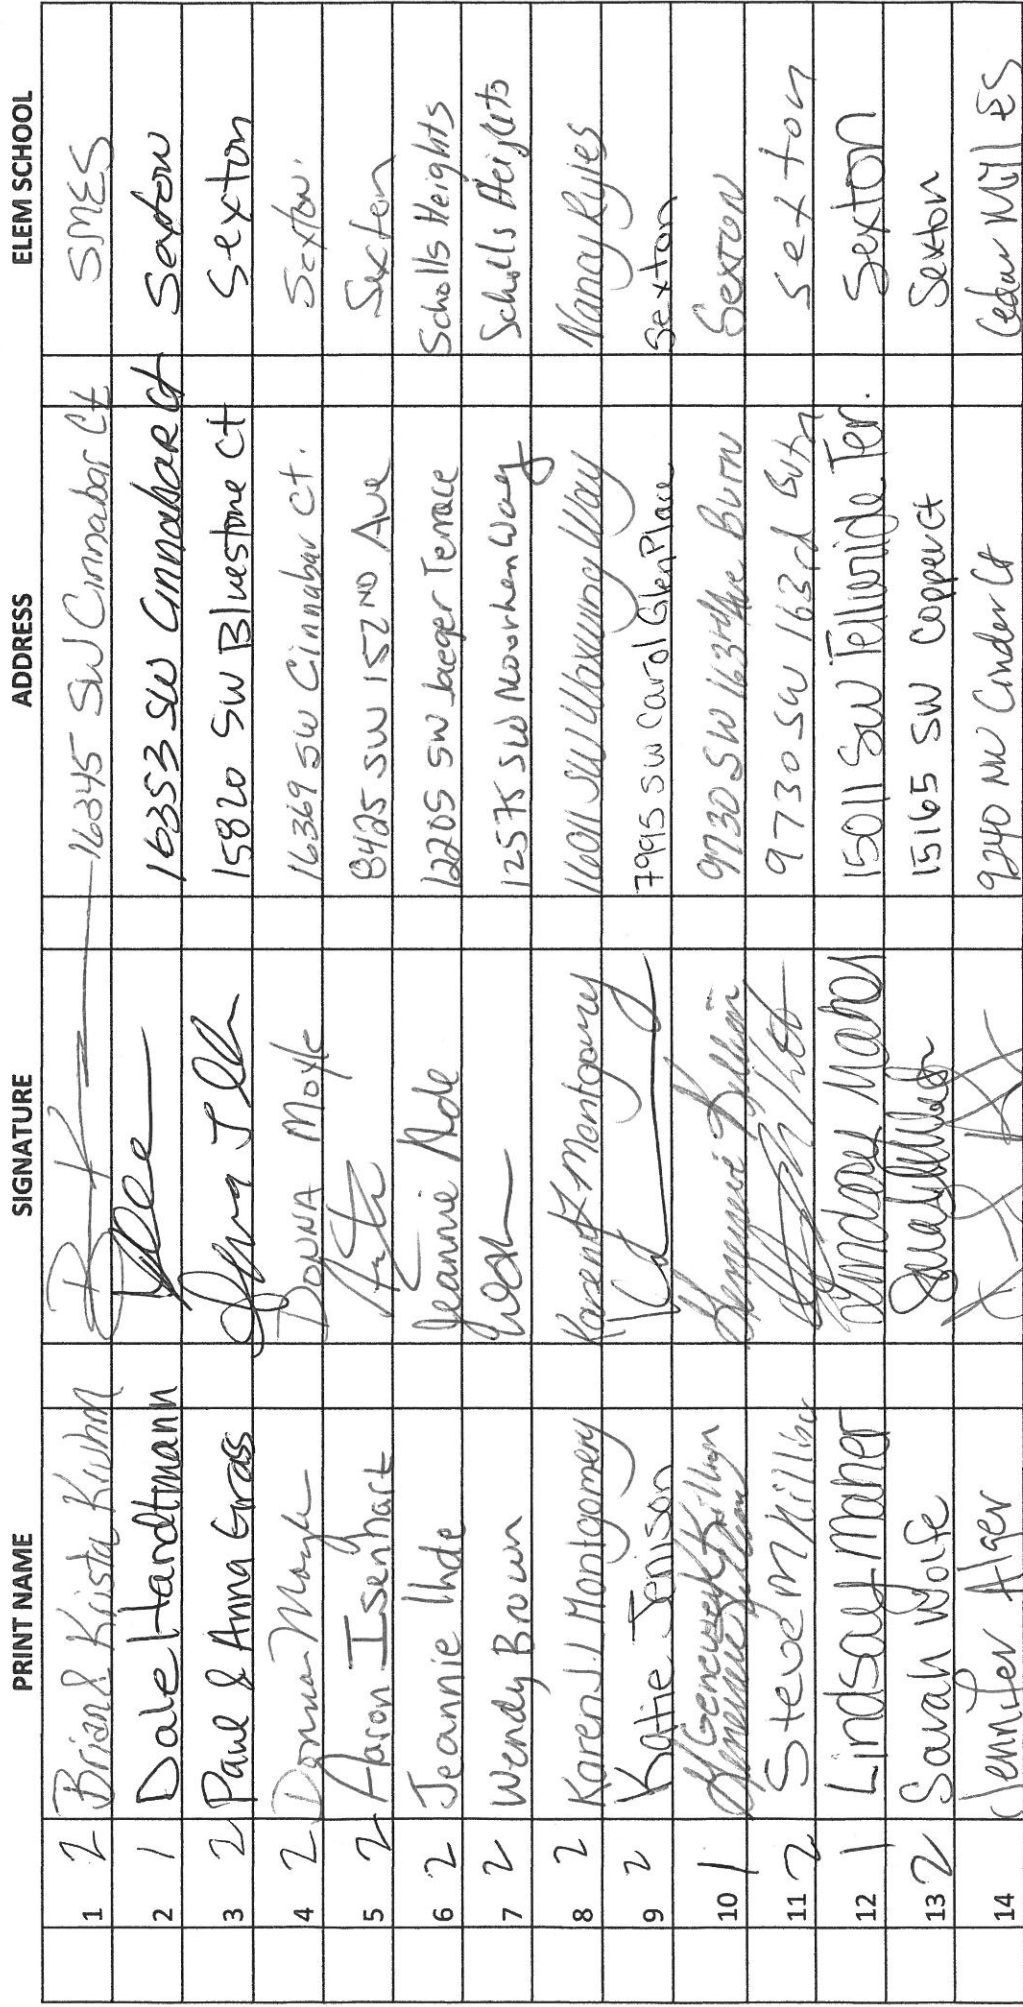 PRINT NAME SIGNATURE ADDRESS ELEM SCHOOL
2 1 Brian & Krista Kuhm 16345 SW Cinnabar Ct SMES
1 2 Dale Hardtmann 16353 SW Cinnabar Ct Sexton
2 3 Paul & Anna Grass 15820 SW Bluestone Ct Sexton
2 4 Donna Moyle DONNA Moyle 16369 SW Cinnabar Ct. Sexton.
2 5 Aaron Isenhart 8425 SW 152ND Ave Sexton
2 6 Jeannie Ihde Jeannie Ihde 12205 SW Jaeger Terrace Scholls Heights
2 7 Wendy Brown 12575 SW Moorhen Way Scholls Heights
2 8 Karen J. Montgomery Karen J Montgomery 16011 SW Waxwing Way Nancy Ryles
2 9 Katie Jenison 7995 SW Carol Glen Place Sexton
1 10 Genevieve Killian Genevieve Killian 9730 SW 163rd Ave Bvtn Sexton
2 11 Steve M Killian 9730 SW 163rd Bvtn Sexton
1 12 Lindsay Maner Lindsay Maner 15011 SW Telluride Ter. Sexton
2 13 Sarah Wolfe 15165 SW Copper Ct Sexton
14 Jennifer Alger 9240 NW Cinder Ct Cedar Mill ES